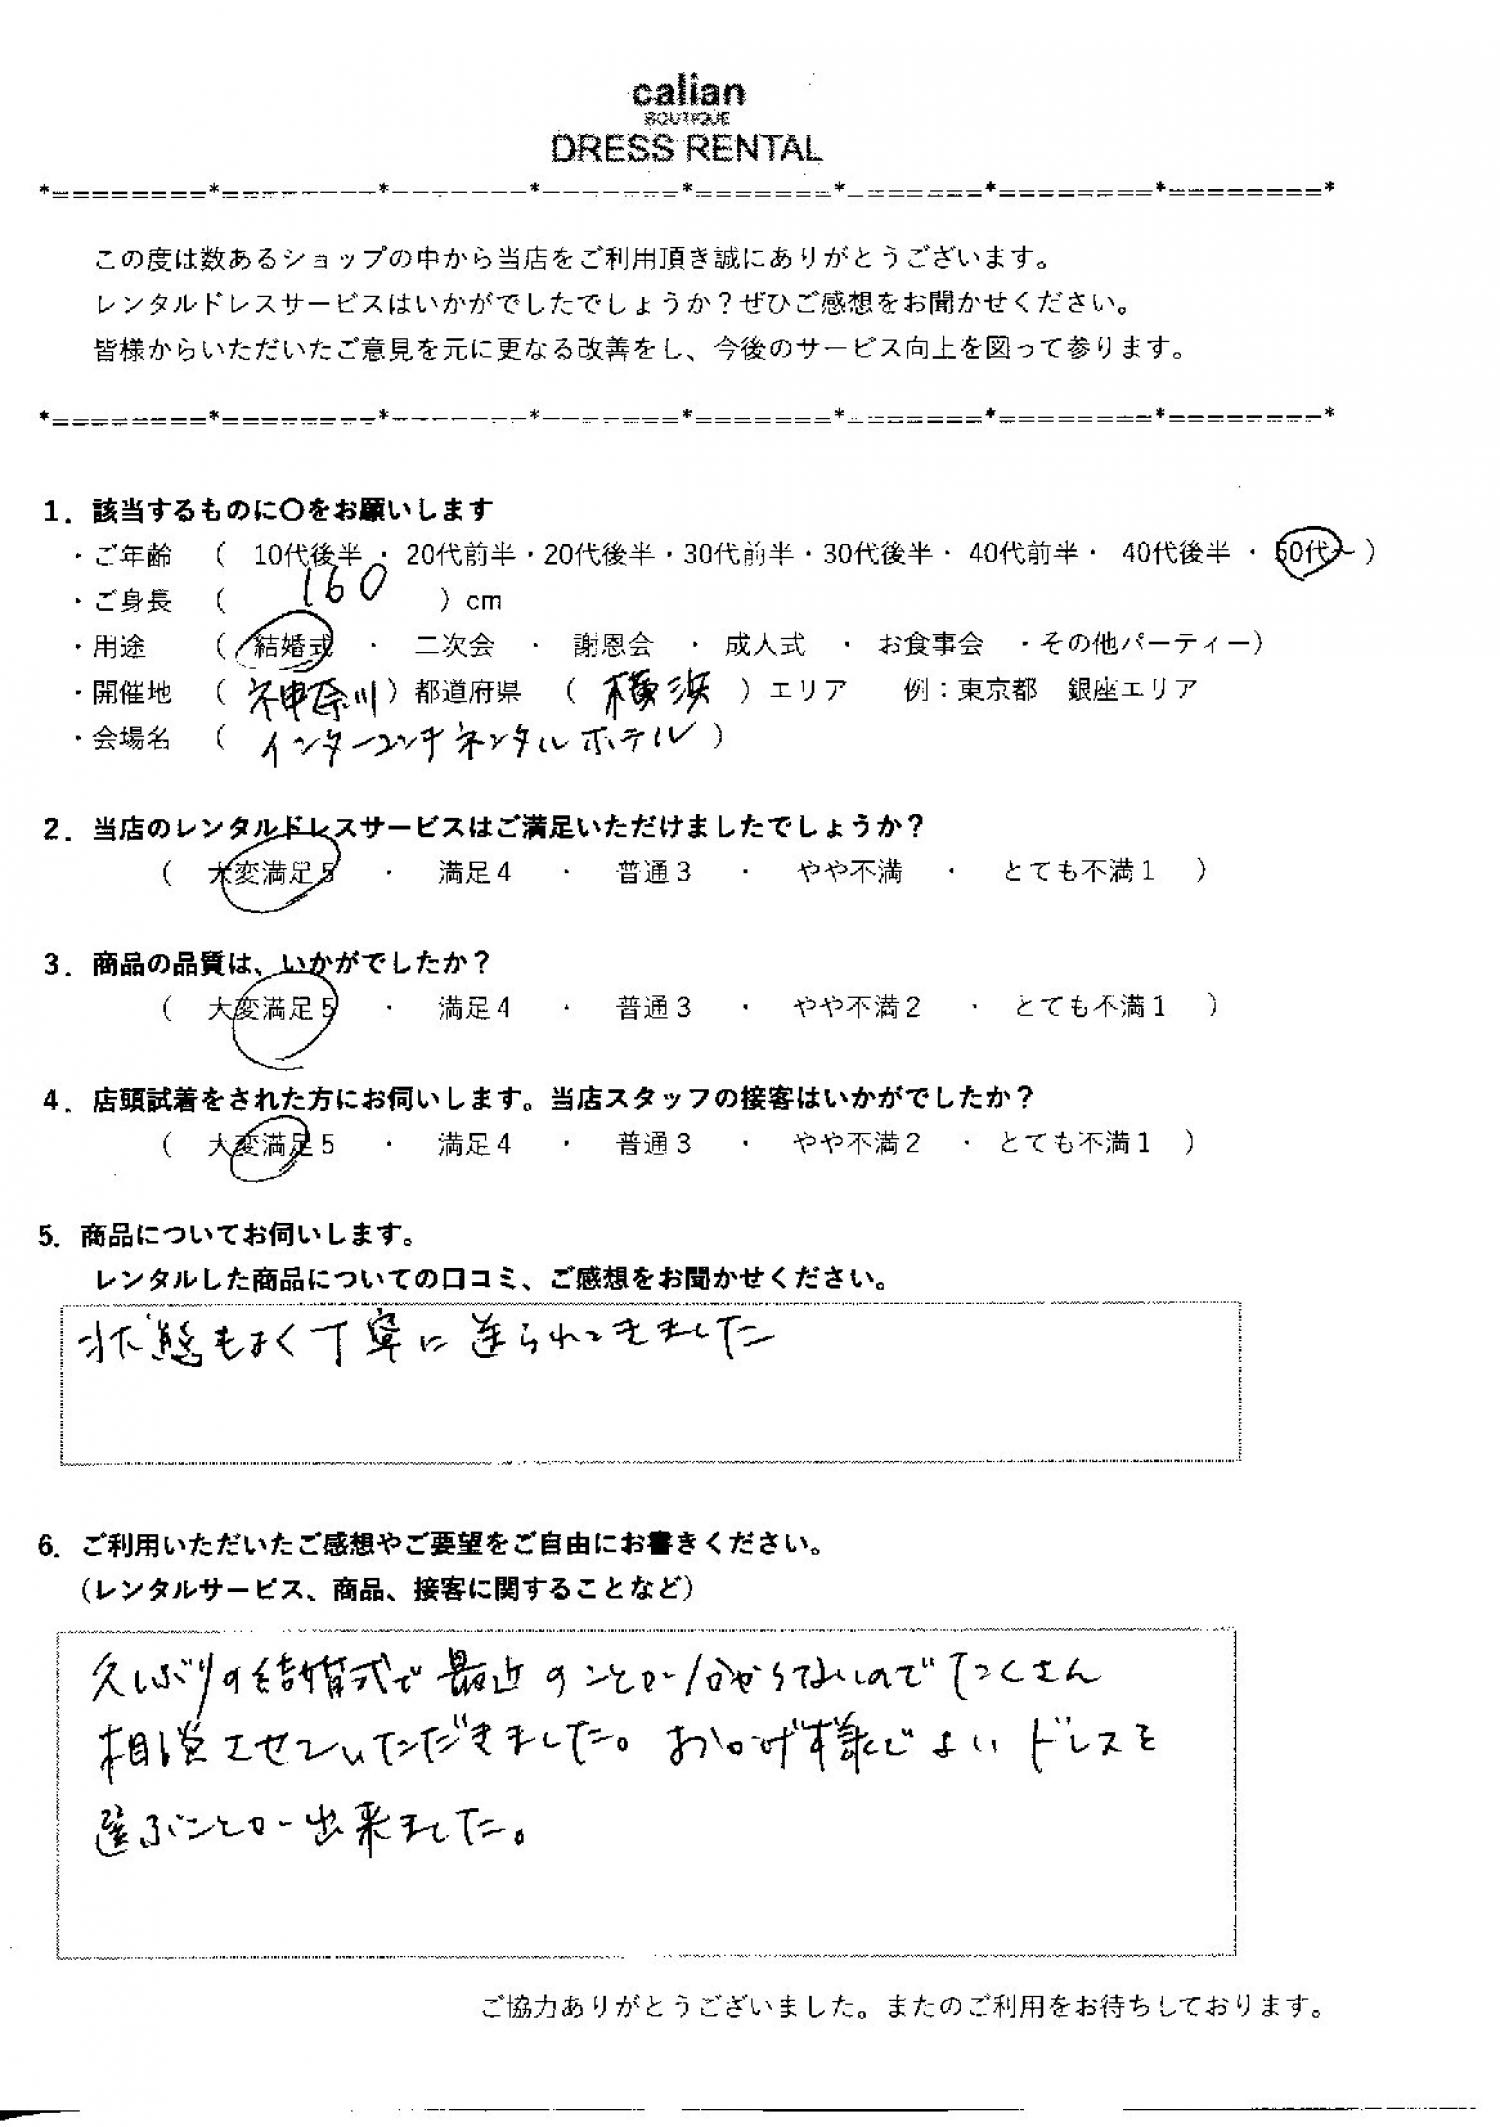 calian
BOUTIQUE
DRESS RENTAL
*========*========*-------*-------*=======*=======*========*========*
この度は数あるショップの中から当店をご利用頂き誠にありがとうございます。
レンタルドレスサービスはいかがでしたでしょうか？ぜひご感想をお聞かせください。
皆様からいただいたご意見を元に更なる改善をし、今後のサービス向上を図って参ります。
*========*========*-------*-------*=======*=======*========*========*
1．該当するものに〇をお願いします
・ご年齢 （ 10代後半 ・ 20代前半・20代後半・30代前半・30代後半・ 40代前半・ 40代後半 ・ 50代～ ）
・ご身長 （ 160 ）cm
・用途 （ 結婚式 ・ 二次会 ・ 謝恩会 ・ 成人式 ・ お食事会 ・その他パーティー）
・開催地 （ 神奈川 ）都道府県 （ 横浜 ）エリア 例：東京都 銀座エリア
・会場名 （ インターコンチネンタルホテル ）
2．当店のレンタルドレスサービスはご満足いただけましたでしょうか？
（ 大変満足５ ・ 満足４ ・ 普通３ ・ やや不満 ・ とても不満１ ）
3．商品の品質は、いかがでしたか？
（ 大変満足５ ・ 満足４ ・ 普通３ ・ やや不満２ ・ とても不満１ ）
4．店頭試着をされた方にお伺いします。当店スタッフの接客はいかがでしたか？
（ 大変満足５ ・ 満足４ ・ 普通３ ・ やや不満２ ・ とても不満１ ）
5．商品についてお伺いします。
レンタルした商品についての口コミ、ご感想をお聞かせください。
状態もよく丁寧に送られてきました
6．ご利用いただいたご感想やご要望をご自由にお書きください。
（レンタルサービス、商品、接客に関することなど）
久しぶりの結婚式で最近のことが分からないのでたくさん
相談させていただきました。おかげ様でよいドレスを
選ぶことが出来ました。
ご協力ありがとうございました。またのご利用をお待ちしております。